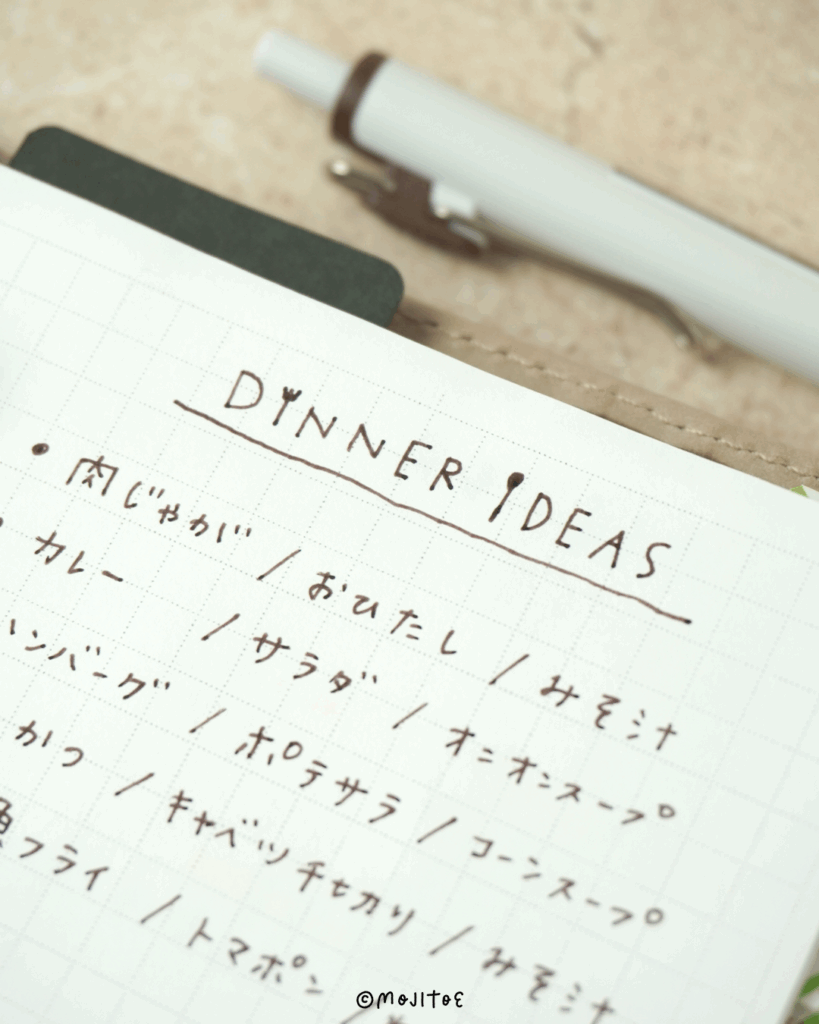 DINNER IDEAS
• 肉じゃが / おひたし / みそ汁
• カレー / サラダ / オニオンスープ
ハンバーグ / ポテサラ / コーンスープ
かつ / キャベツ千七カリ / みそ汁
魚フライ / トマポン /
©MOJITOE